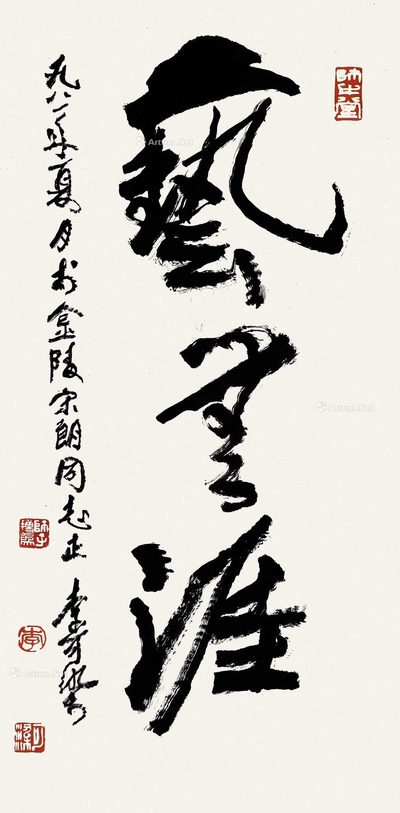 師牛堂
藝無涯
一九八一年夏月於金陵宋朗同志正 李可染
李
可染
Artron.Net